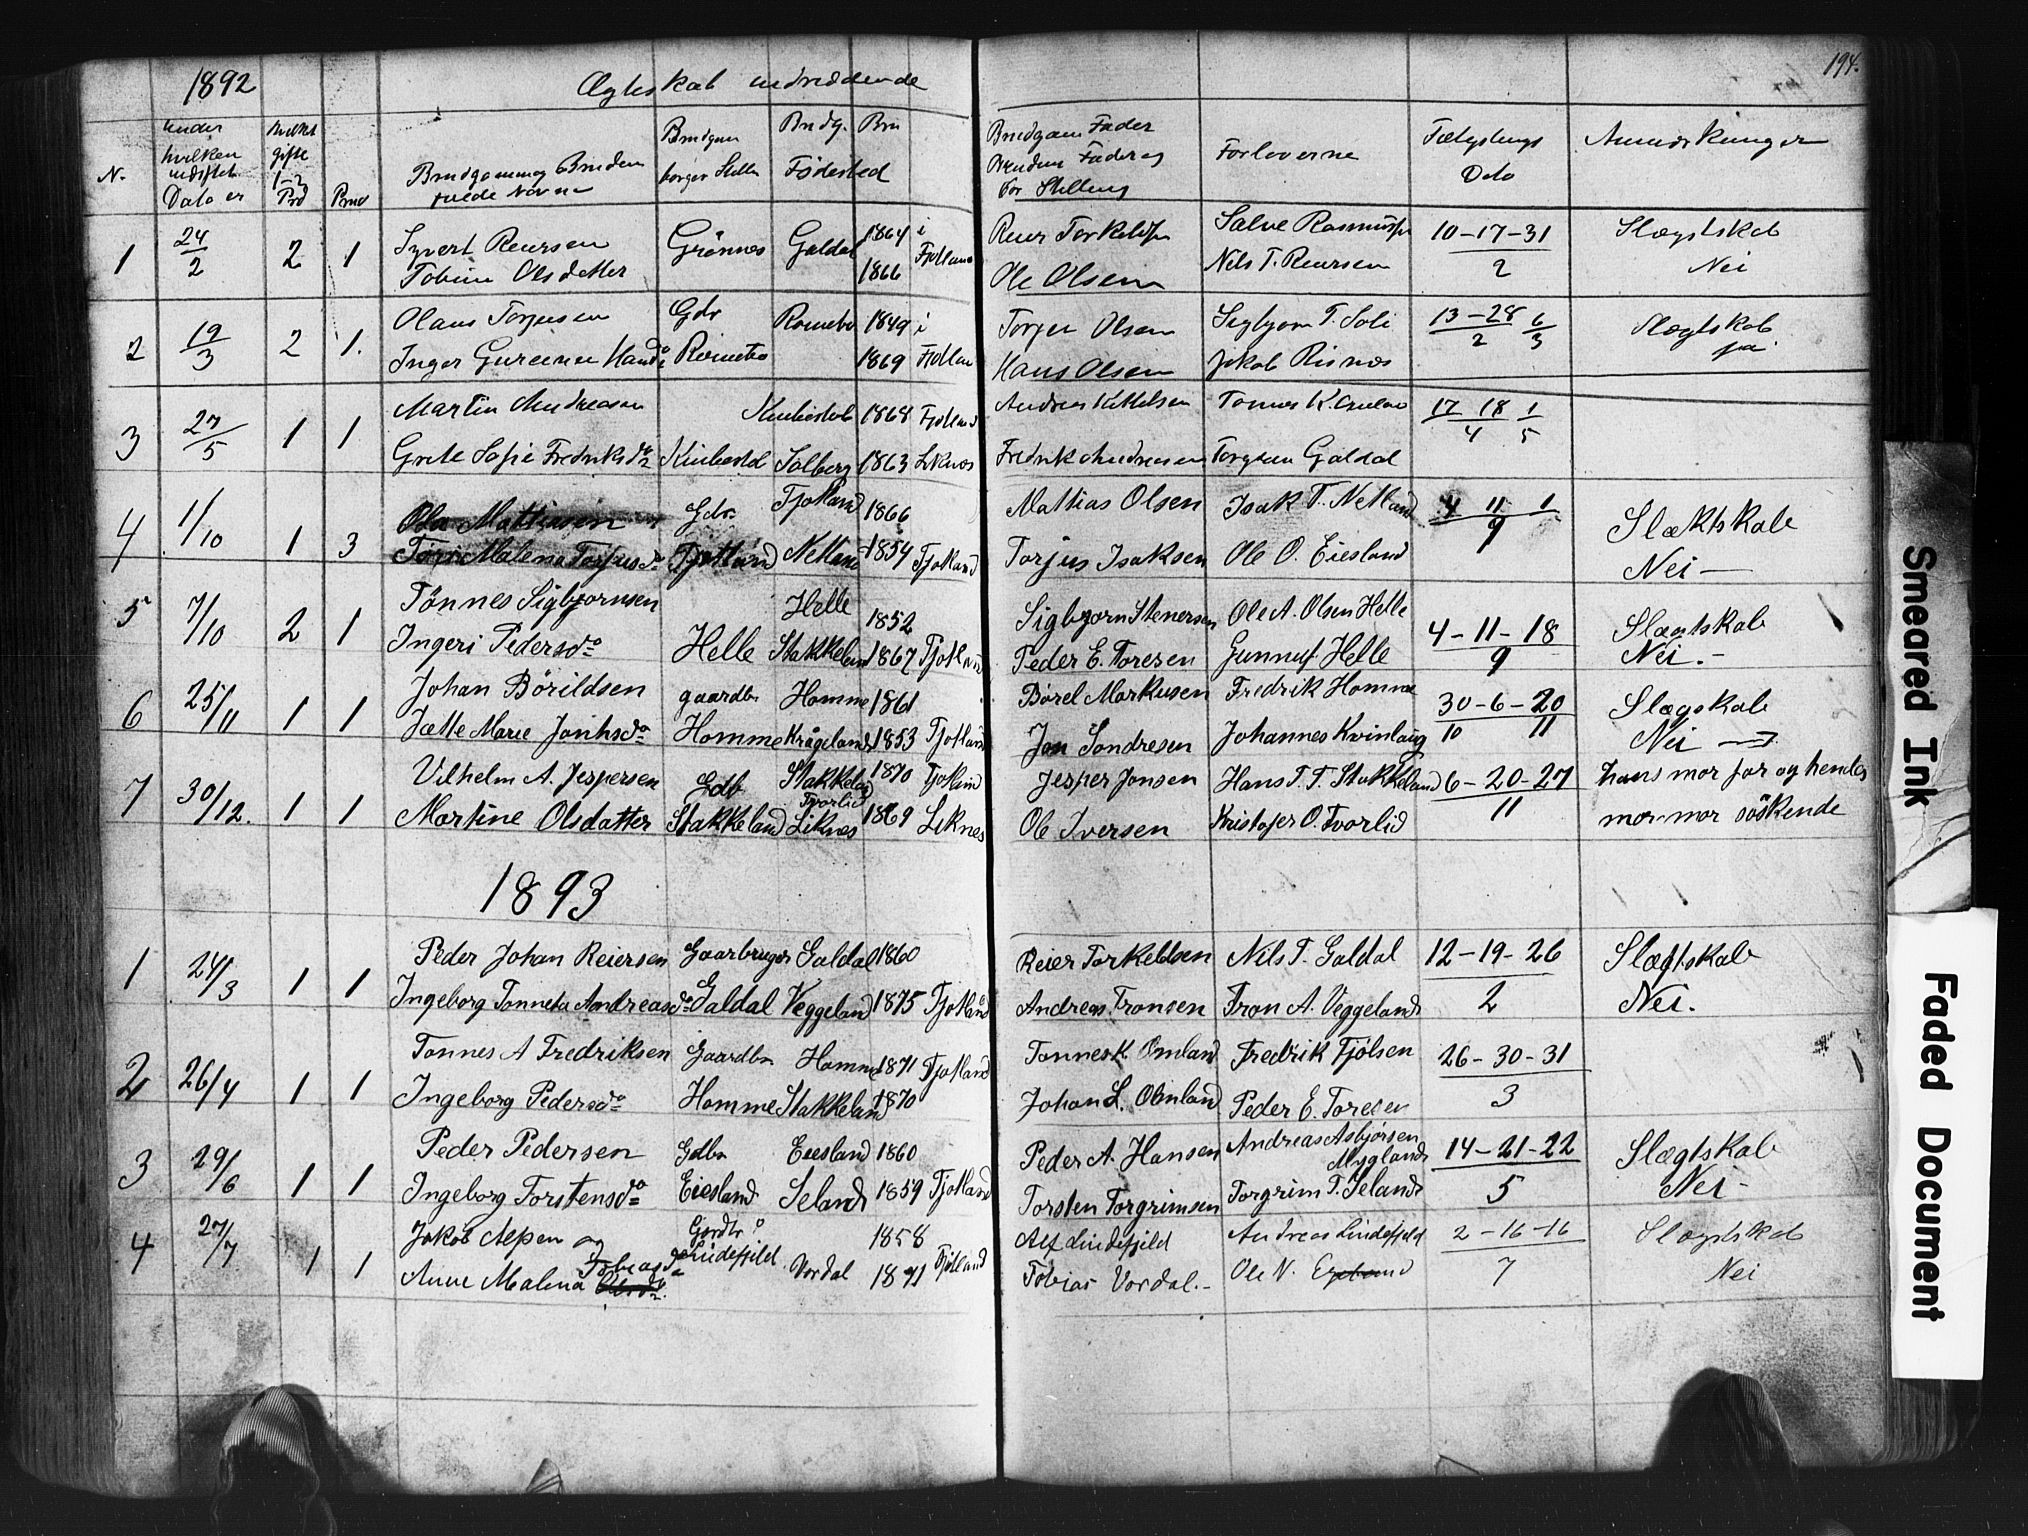 1892 Ægteskab indtrædende 194.
N. under hvilken indstift Dato er hvilket gifte 1-2 Brd Brud Brudgom og Bruden fulde Navne Brudgom borger Stelle Brdg. Bru Fødested Brudgom Fader Brudens Fader og bor Stelling Forloverne Tælysnings Dato Anmærkninger
1 24/2 2 1 Syvert Reiersen Grönnes Galdal 1864 i Fjotland Reier Torkelsen Salve Rasmusen 10-17-31 Slægtskab
Tobine Olsdatter 1866 Ole Olsen Nils T. Reiersen 2 Nei
2 19/3 2 1. Olaus Torjusen Gdr Risnebø 1849 i Torjus Olsen Sigbjørn T. Soli 13-28 6 Slægtskab
Inger Gureine Hansd. Risnebø 1869 Fjotland Hans Olsen Jakob Risnes 2 3 ja
3 27/5 1 1 Martin Andreasen Knibestøl 1868 Fjotland Andreas Kittelsen Tomas K. 17 18 1
Grete Sofie Fredriksd. Knibestøl Solberg 1863 Liknes Fredrik Andreasen Torgrim Galdal 4 5
4 1/10 1 3 Ola Mattiasen Gdr. Fjotland 1866 Mattias Olsen Isak T. Netland 4 11 1 Slæktskab
Torju Malena Torjusd. Fjotland Netland 1854 Fjotland Torjus Isaksen Ole O. Eiesland 9 Nei —
5 7/10 2 1 Tønnes Sigbjørnsen Helle 1852 Sigbjorn Stenersen Ole A. Olsen Helle 4-11-18 Slægtskab
Ingeri Pedersd. Helle Stakkeland 1867 Fjotland Peder E. Toresen Gunnuf Helle 9 Nei.-
6 25/11 1 1 Johan Börildsen gaardbr Homme 1861 Börel Markusen Fredrik Homme 30-6-20 Slægskab
Jætte Marie Jonhsd. Homme Krågeland 1853 Fjotland Jon Söndresen Johannes Kvinlaug 10 11 Nei —
7 30/12. 1 1 Vilhelm A. Jespersen Gdb Stakkeland 1870 Fjotland Jesper Jonsen Hans T. T. Stakkeland 6-20-27 hans mor far og hendes
Martine Olsdatter Stakkeland Tvorlid Liknes 1869 Liknes Ole Iversen Kristofer O. Tvorlid 11 mor-mor söskende
1893
1 24/3 1 1 Peder Johan Reiersen Gaarbruger Galdal 1860 Reier Torkeldsen Nils T. Galdal 12-19-26 Slægtskab
Ingeborg Tonneta Andreasd. Galdal Veggeland 1875 Fjotland Andreas Tronsen Tron A. Veggeland 2 Nei.
2 26/4 1 1 Tonnes A Fredriksen Gaardbr Homme 1871 Fjotland Tonnes K. Omland Fredrik Fjölsen 26-30-31
Ingeborg Pedersd. Homme Stakkeland 1870 Johan L. Omland Peder E. Toresen 3
3 29/6 1 1 Peder Pedersen Gdbr Eiesland 1860 Peder A. Hansen Andreas Asbjørsen Mygland 14-21-22 Slægtskab
Ingeborg Torstensd. Eiesland Seland 1859 Fjotland Torsten Torgrimsen Torgrim T. Seland 5 Nei-
4 27/7 1 1 Jakob Alfsen og Gardbr 1858 Alf Lindefjeld Andreas Lindefjeld 2-16-16 Slægtskab
Anne Malena Tobiasd. Lindefjeld Vordal 1871 Fjotland Tobias Vordal.- Ole N. 7 Nei
Smeared Ink
Faded Document